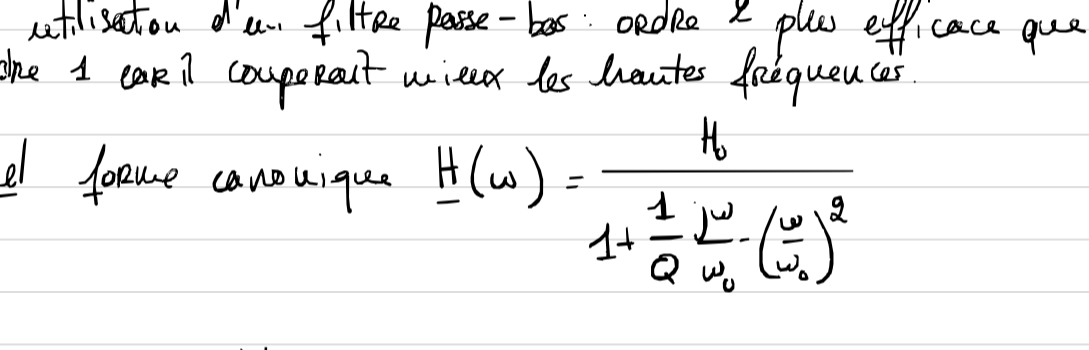 utilisation d'un filtre passe-bas : ordre 2 plus efficace que
dre 1 car il couperait mieux les hautes fréquences.
e/ forme canonique H(ω) = H₀ / (1 + 1/Q jω/ω₀ - (ω/ω₀)²)